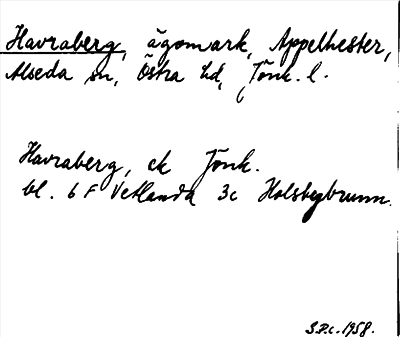 Havraberg, ägomark, Appelhester,
Alseda sn, Östra hd, Jönk. l.
Havraberg, ek Jönk.
bl. 6 F Vetlanda 3c Holsbybrunn.
S.P.c. 1958.